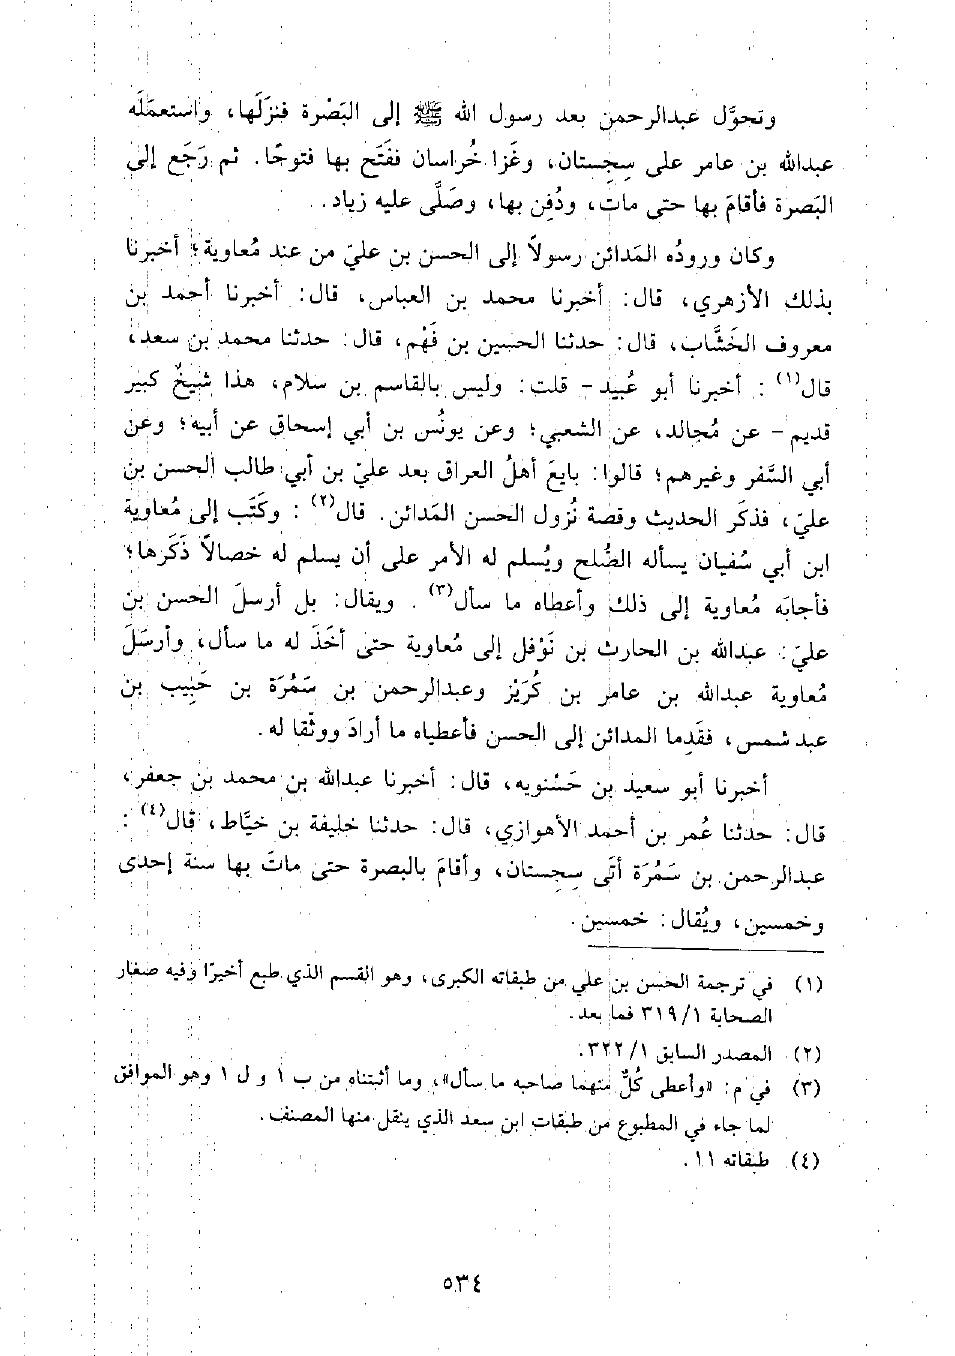 وتحوَّل عبدالرحمن بعد رسول الله ﷺ إلى البَصْرة فنزَلَها، واستعمَلَه
عبدالله بن عامر على سِجِستان، وغَزا خُراسان ففَتَح بها فتوحًا. ثم رَجَع إلى
البَصرة فأقامَ بها حتى ماتَ، ودُفِن بها، وصَلَّى عليه زياد.
وكان ورودُه المَدائن رسولاً إلى الحسن بن عليّ من عند مُعاوية؛ أخبرنا
بذلك الأزهري، قال: أخبرنا محمد بن العباس، قال: أخبرنا أحمد بن
معروف الخَشَّاب، قال: حدثنا الحسين بن فَهْم، قال: حدثنا محمد بن سعد،
قال(١): أخبرنا أبو عُبيد - قلت: وليس بالقاسم بن سلام، هذا شيخٌ كبير
قديم - عن مُجالد، عن الشعبي؛ وعن يونُس بن أبي إسحاق عن أبيه؛ وعن
أبي السَّفر وغيرهم؛ قالوا: بايعَ أهلُ العراق بعد عليّ بن أبي طالب الحسن بن
عليّ، فذكَر الحديث وقصة نُزول الحسن المَدائن. قال(٢): وكَتَب إلى مُعاوية
ابن أبي سُفيان يسأله الصُّلح ويُسلم له الأمر على أن يسلم له خصالاً ذَكَرها؛
فأجابَه مُعاوية إلى ذلك وأعطاه ما سأل(٣). ويقال: بل أرسلَ الحسن بن
عليّ: عبدالله بن الحارث بن نَوْفل إلى مُعاوية حتى أخَذَ له ما سأل، وأرسَلَ
مُعاوية عبدالله بن عامر بن كُرَيْز وعبدالرحمن بن سَمُرَة بن حَبِيب بن
عبد شمس، فقَدِما المدائن إلى الحسن فأعطياه ما أرادَ ووثَّقا له.
أخبرنا أبو سعيد بن حَسْنويه، قال: أخبرنا عبدالله بن محمد بن جعفر،
قال: حدثنا عُمر بن أحمد الأهوازي، قال: حدثنا خليفة بن خيَّاط، قال(٤):
عبدالرحمن بن سَمُرَة أتَى سِجِستان، وأقامَ بالبصرة حتى ماتَ بها سنة إحدى
وخمسين، ويُقال: خمسين.
(١) في ترجمة الحسن بن علي من طبقاته الكبرى، وهو القسم الذي طبع أخيرًا وفيه صغار
الصحابة ٣١٩/١ فما بعد.
(٢) المصدر السابق ٣٢٢/١.
(٣) في م: «وأعطى كُلٌّ منهما صاحبه ما سأل»، وما أثبتناه من ب ١ و ل ١ وهو الموافق
لما جاء في المطبوع من طبقات ابن سعد الذي ينقل منها المصنف.
(٤) طبقاته ١١.
٥٣٤